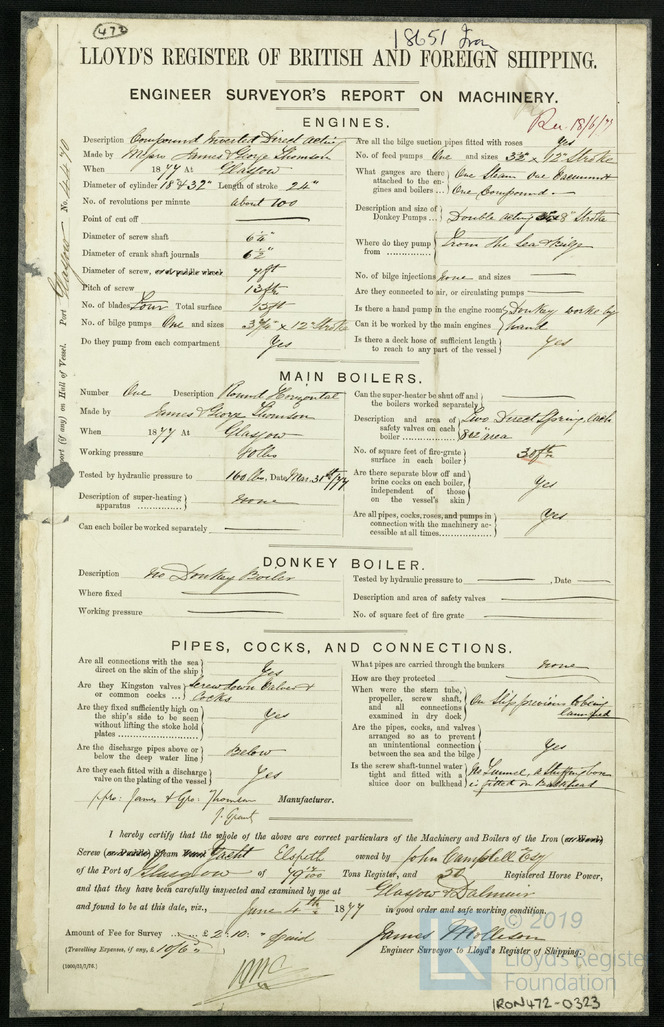 472
18651 Iron
LLOYD'S REGISTER OF BRITISH AND FOREIGN SHIPPING.
ENGINEER SURVEYOR'S REPORT ON MACHINERY.
Rec. 18/6/77
Port Glasgow No. 4470
port (if any) on Hull of Vessel.
ENGINES.
Description Compound Inverted Direct acting
Made by Messrs James & George Thomson
When 1877 At Glasgow
Diameter of cylinder 18 & 32" Length of stroke 24"
No. of revolutions per minute about 100
Point of cut off
Diameter of screw shaft
Diameter of crank shaft journals 6½"
Diameter of screw, or of paddle wheels
Pitch of screw
No. of blades Four Total surface 15 ft
No. of bilge pumps One and sizes x 12" Stroke
Do they pump from each compartment Yes
Are all the bilge suction pipes fitted with roses Yes
No. of feed pumps One and sizes x 12" Stroke
What gauges are there attached to the engines and boilers One Steam One Vacuum &
One Compound
Description and size of Donkey Pumps Double acting x 8" Stroke
Where do they pump from From the Sea & Bilge
No. of bilge injections none and sizes
Are they connected to air, or circulating pumps
Is there a hand pump in the engine room Donkey works by
Can it be worked by the main engines hand
Is there a deck hose of sufficient length to reach to any part of the vessel Yes
MAIN BOILERS.
Number One Description Round Horizontal
Made by James & George Thomson
When 1877 At Glasgow
Working pressure 80 lbs
Tested by hydraulic pressure to 160 lbs, Date Mar. 31st/77
Description of super-heating apparatus none
Can each boiler be worked separately
Can the super-heater be shut off and the boilers worked separately
Description and area of safety valves on each boiler Two Direct Spring, each
area
No. of square feet of fire-grate surface in each boiler 30 ft
Are there separate blow off and brine cocks on each boiler, independent of those on the vessel's skin Yes
Are all pipes, cocks, roses, and pumps in connection with the machinery accessible at all times Yes
DONKEY BOILER.
Description No Donkey Boiler
Where fixed
Working pressure
Tested by hydraulic pressure to , Date
Description and area of safety valves
No. of square feet of fire grate
PIPES, COCKS, AND CONNECTIONS.
Are all connections with the sea direct on the skin of the ship Yes
Are they Kingston valves or common cocks Screw down Valves &
Cocks
Are they fixed sufficiently high on the ship's side to be seen without lifting the stoke hold plates Yes
Are the discharge pipes above or below the deep water line Below
Are they each fitted with a discharge valve on the plating of the vessel Yes
What pipes are carried through the bunkers none
How are they protected
When were the stern tube, propeller, screw shaft, and all connections examined in dry dock On Slip previous to being
launched
Are the pipes, cocks, and valves arranged so as to prevent an unintentional connection between the sea and the bilge Yes
Is the screw shaft-tunnel water tight and fitted with a sluice door on bulkhead No Tunnel, a Stuffing box
is fitted on Bulkhead
ppro: James & Geo: Thomson Manufacturer.
J. Grant
I hereby certify that the whole of the above are correct particulars of the Machinery and Boilers of the Iron (or Wood)
Screw (or Paddle) Steam Yacht Elspeth owned by John Campbell Esq
of the Port of Glasgow of Tons Register, and 50 Registered Horse Power,
and that they have been carefully inspected and examined by me at Glasgow & Dalmuir
and found to be at this date, viz., June 4th 1877 in good order and safe working condition.
Amount of Fee for Survey £2: 10: " paid
(Travelling Expenses, if any, £ 10/6)
James Mollison
Engineer Surveyor to Lloyd's Register of Shipping.
© 2019
Lloyd's Register
Foundation
IRON472-0323